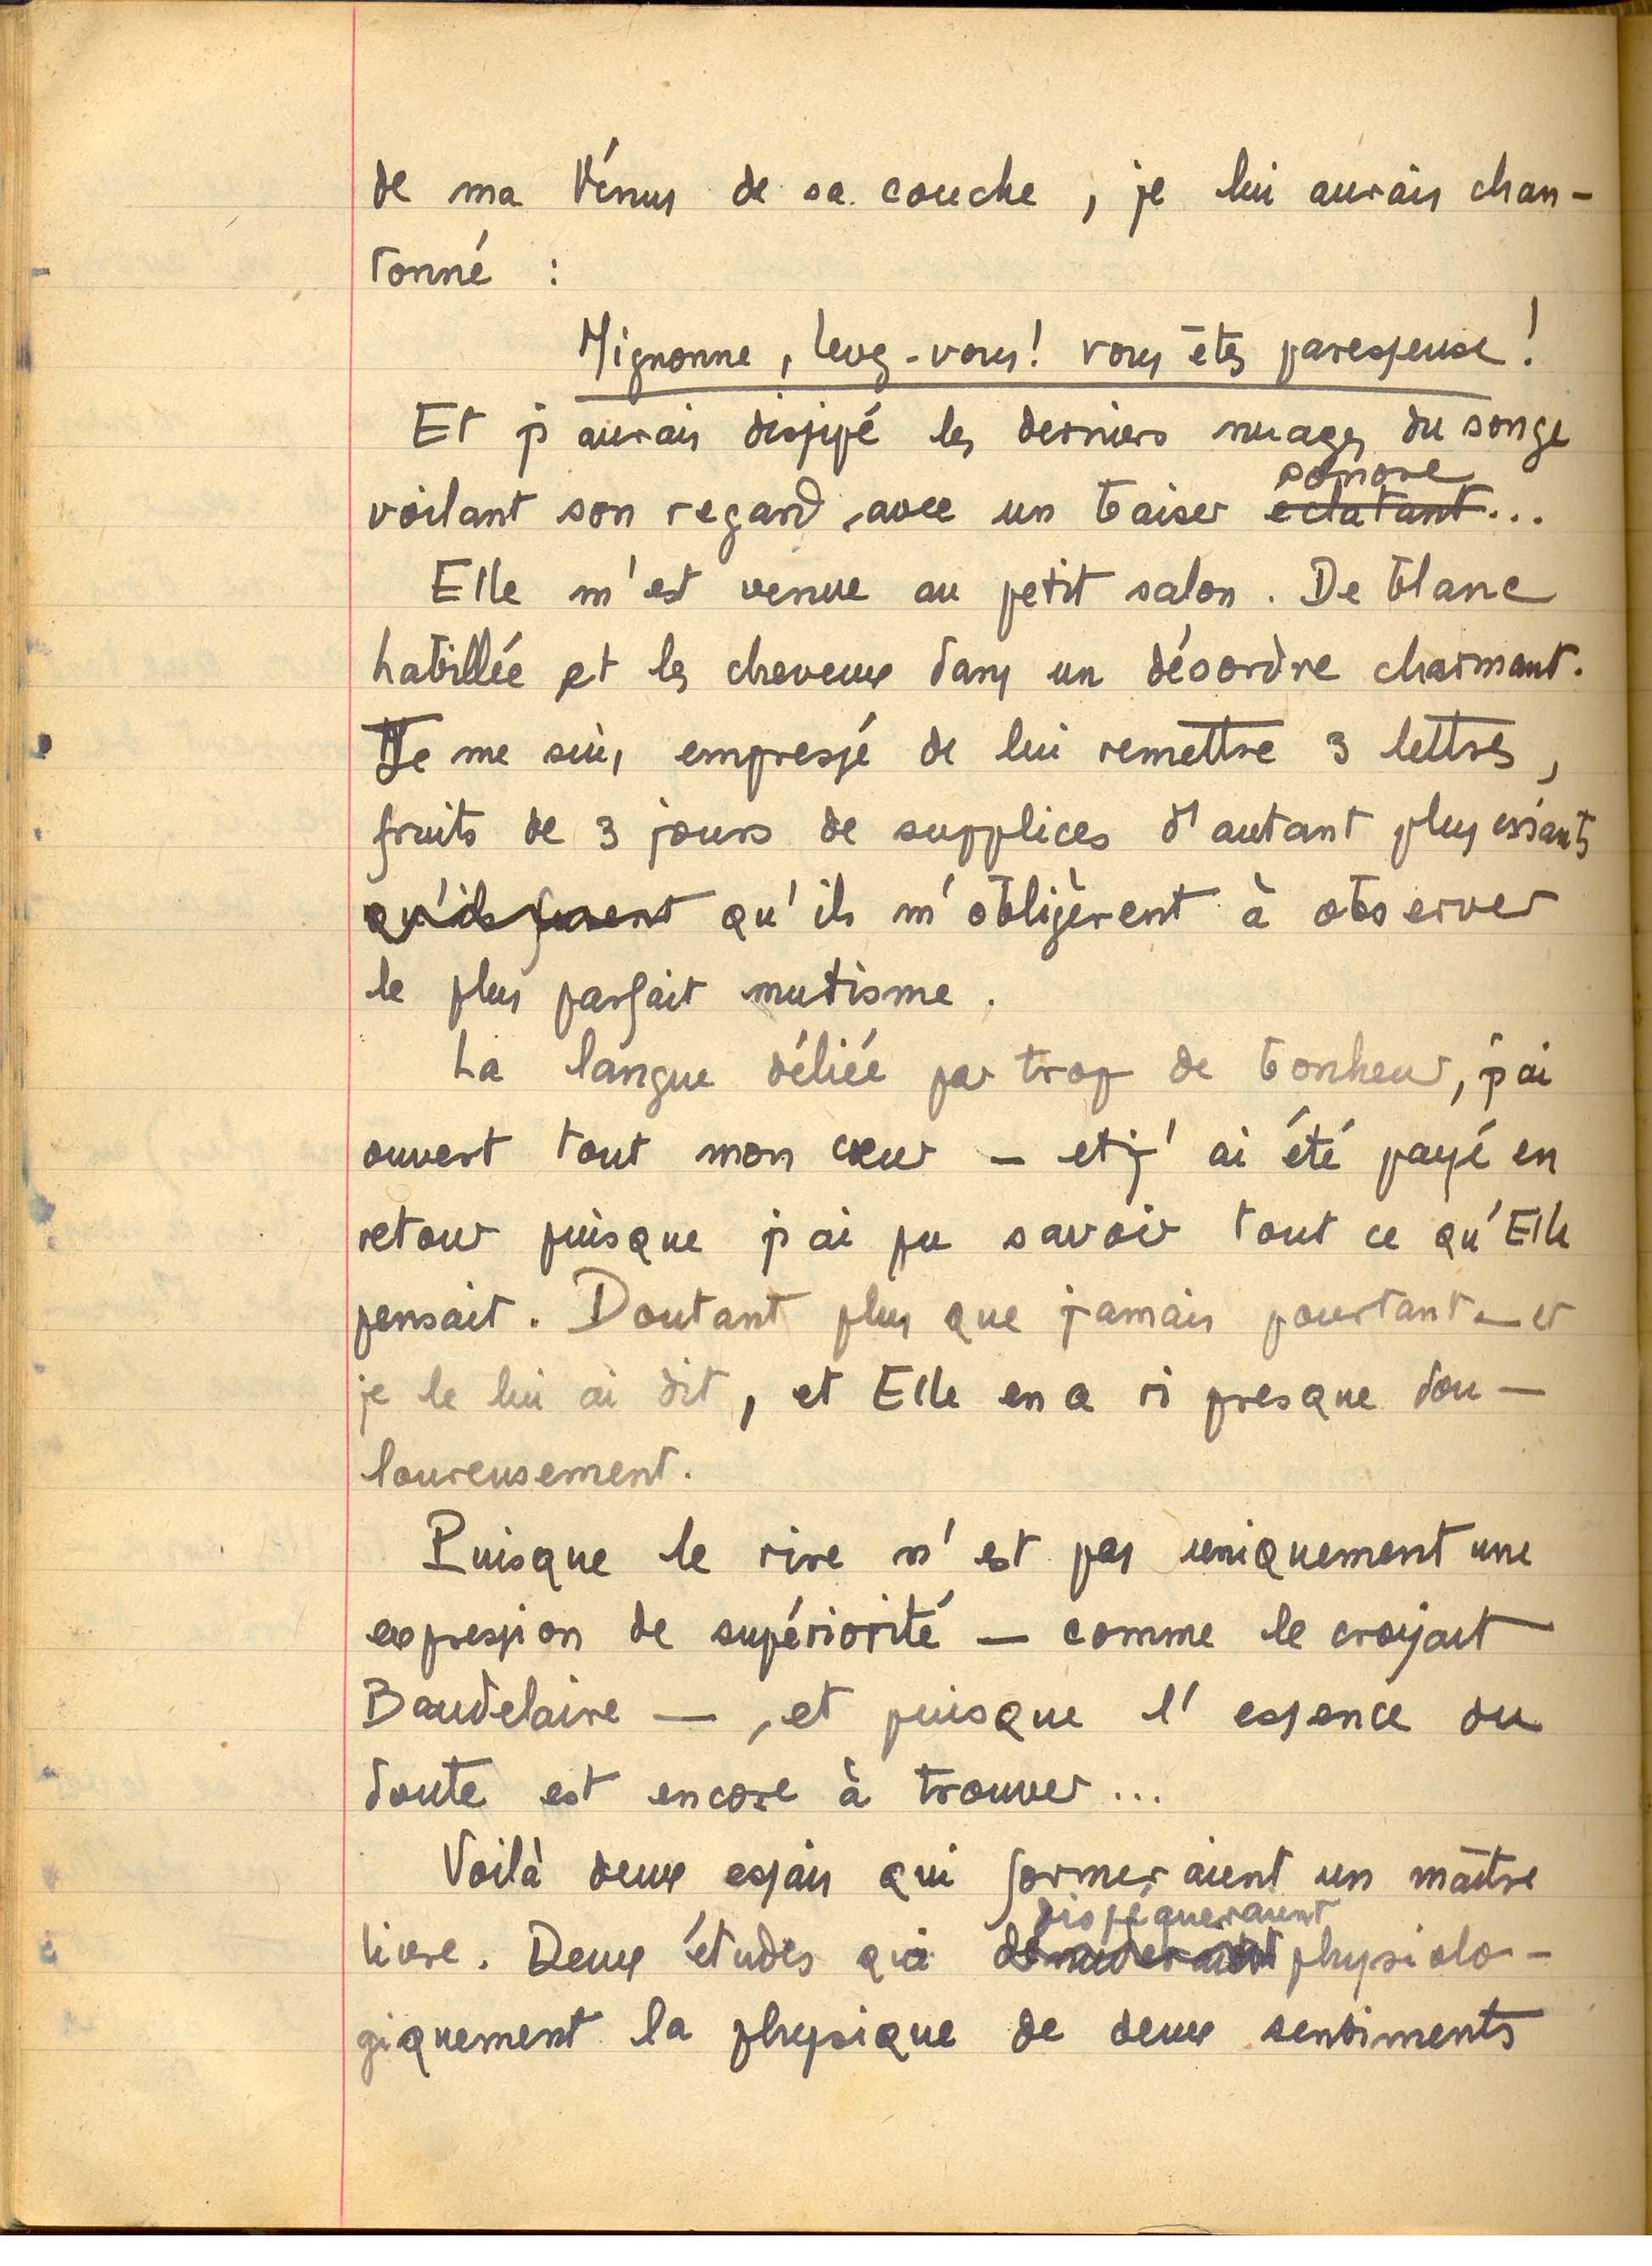 de ma Vénus de sa couche, je lui aurais chan-
tonné :
Mignonne, levez-vous! vous êtes paresseuse!
Et j'aurais dissipé les derniers nuages du songe
sonore
voilant son regard, avec un baiser éclatant...
Elle m'est venue au petit salon. De blanc
habillée et les cheveux dans un désordre charmant.
Je me suis empressé de lui remettre 3 lettres,
fruits de 3 jours de supplices d'autant plus
qu'ils furent qu'ils m'obligèrent à observer
le plus parfait mutisme.
La langue déliée par trop de bonheur, j'ai
ouvert tout mon cœur — et j'ai été payé en
retour puisque j'ai pu savoir tout ce qu'Elle
pensait. Doutant plus que jamais pourtant — et
je le lui ai dit, et Elle en a ri presque dou-
loureusement.
Puisque le rire n'est pas uniquement une
expression de supériorité — comme le croyait
Baudelaire —, et puisque l'essence du
doute est encore à trouver...
Voilà deux essais qui formeraient un maître
dissèqueraient
livre. Deux études qui physiolo-
giquement la physique de deux sentiments